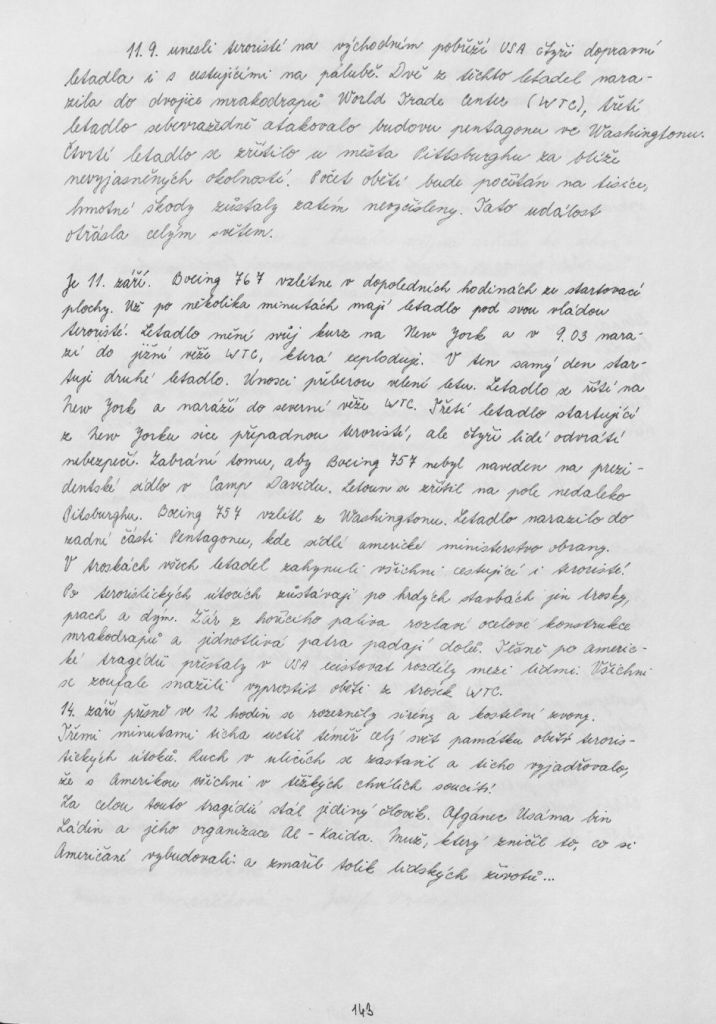 11.9. unesli teroristé na východním pobřeží USA čtyři dopravní
letadla i s cestujícími na palubě. Dvě z těchto letadel nara-
zila do dvojice mrakodrapů World Trade Center (WTC), třetí
letadlo sebevražedně atakovalo budovu pentagonu ve Washingtonu.
Čtvrté letadlo se zřítilo u města Pittsburghu za blíže
nevyjasněných okolností. Počet obětí bude počítán na tisíce,
hmotné škody zůstaly zatím nevyčísleny. Tato událost
otřásla celým světem.
Je 11. září. Boeing 767 vzlétne v dopoledních hodinách ze startovací
plochy. Už po několika minutách mají letadlo pod svou vládou
teroristé. Letadlo mění svůj kurz na New York a v 9.03 nara-
zí do jižní věže WTC, která exploduje. V ten samý den star-
tuje druhé letadlo. Únosci přiberou velení letu. Letadlo se řítí na
New York a naráží do severní věže WTC. Třetí letadlo startující
z New Yorku sice přepadnou teroristé, ale čtyři lidé odvrátí
nebezpečí. Zabrání tomu, aby Boeing 757 nebyl naveden na prezi-
dentské sídlo v Camp Davidu. Letoun se zřítil na pole nedaleko
Pitsburghu. Boeing 757 vzlétl z Washingtonu. Letadlo narazilo do
zadní části Pentagonu, kde sídlí americké ministerstvo obrany.
V troskách všech letadel zahynuli všichni cestující i teroristé!
Po teroristických útocích zůstávají po hrdých stavbách jen trosky,
prach a dým. Žár z hořícího paliva roztaví ocelové konstrukce
mrakodrapů a jednotlivá patra padají dolů. Těsně po americ-
ké tragédii přestaly v USA existovat rozdíly mezi lidmi. Všichni
se zoufale snažili vyprostit oběti z trosek WTC.
14. září přesně ve 12 hodin se rozezněly sirény a kostelní zvony.
Třemi minutami ticha uctil téměř celý svět památku obětí teroris-
tických útoků. Ruch v ulicích se zastavil a ticho vyjadřovalo,
že s Amerikou všichni v těžkých chvílích soucítí!
Za celou touto tragédií stál jediný člověk. Afgánec Usáma bin
Ládin a jeho organizace Al-Kaida. Muž, který zničil to, co si
Američané vybudovali a zmařil tolik lidských životů...
143